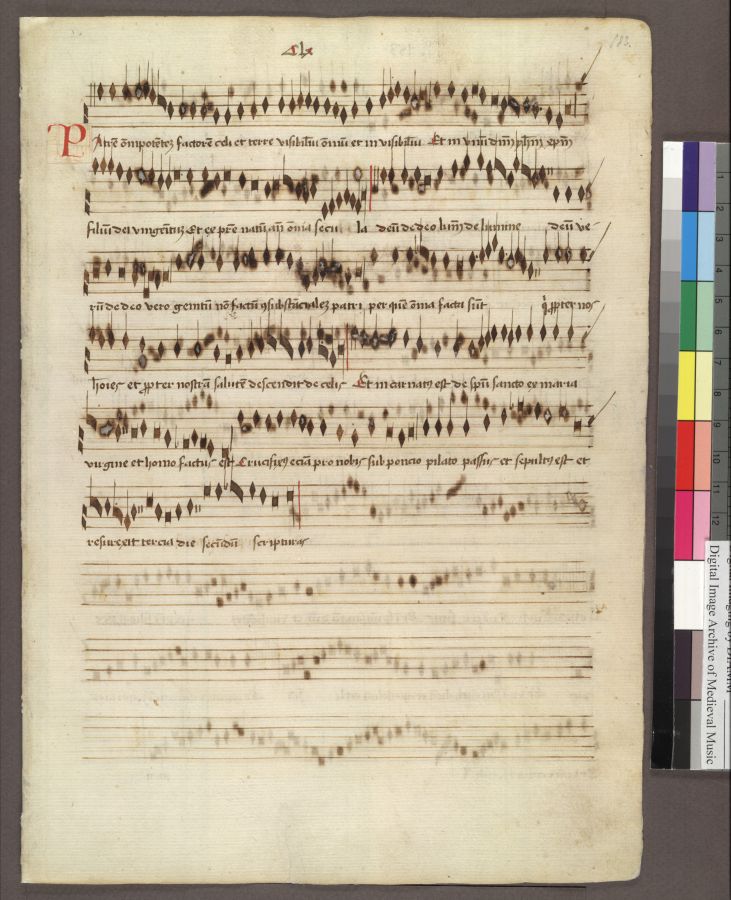 clx
183.
Patrē om̄ipotētē factorē celi et terre visibiliū om̄iū et in visibiliū Et in unū dn̄m yh̄m xpm̄
filiū dei vnigenitū Et ex pr̄e natū an̄ om̄ia secu la deū de deo lum̄ de lumine deū ve
rū de deo vero genitū nō factū ꝯsubstācialē patri per quē om̄ia facta sūt q̄ ꝓpter nos
hoīes et ꝓpter nostrā salutē descendit de celis Et in carnatꝰ est de spū sancto ex maria
virgine et homo factus est Crucifixꝰ eciā pro nobis sub poncio pilato passus et sepultꝰ est et
resurexit tercia die secūdū scripturas
1
2
3
4
5
6
7
8
9
10
11
12
Digital Image Archive of Medieval Music